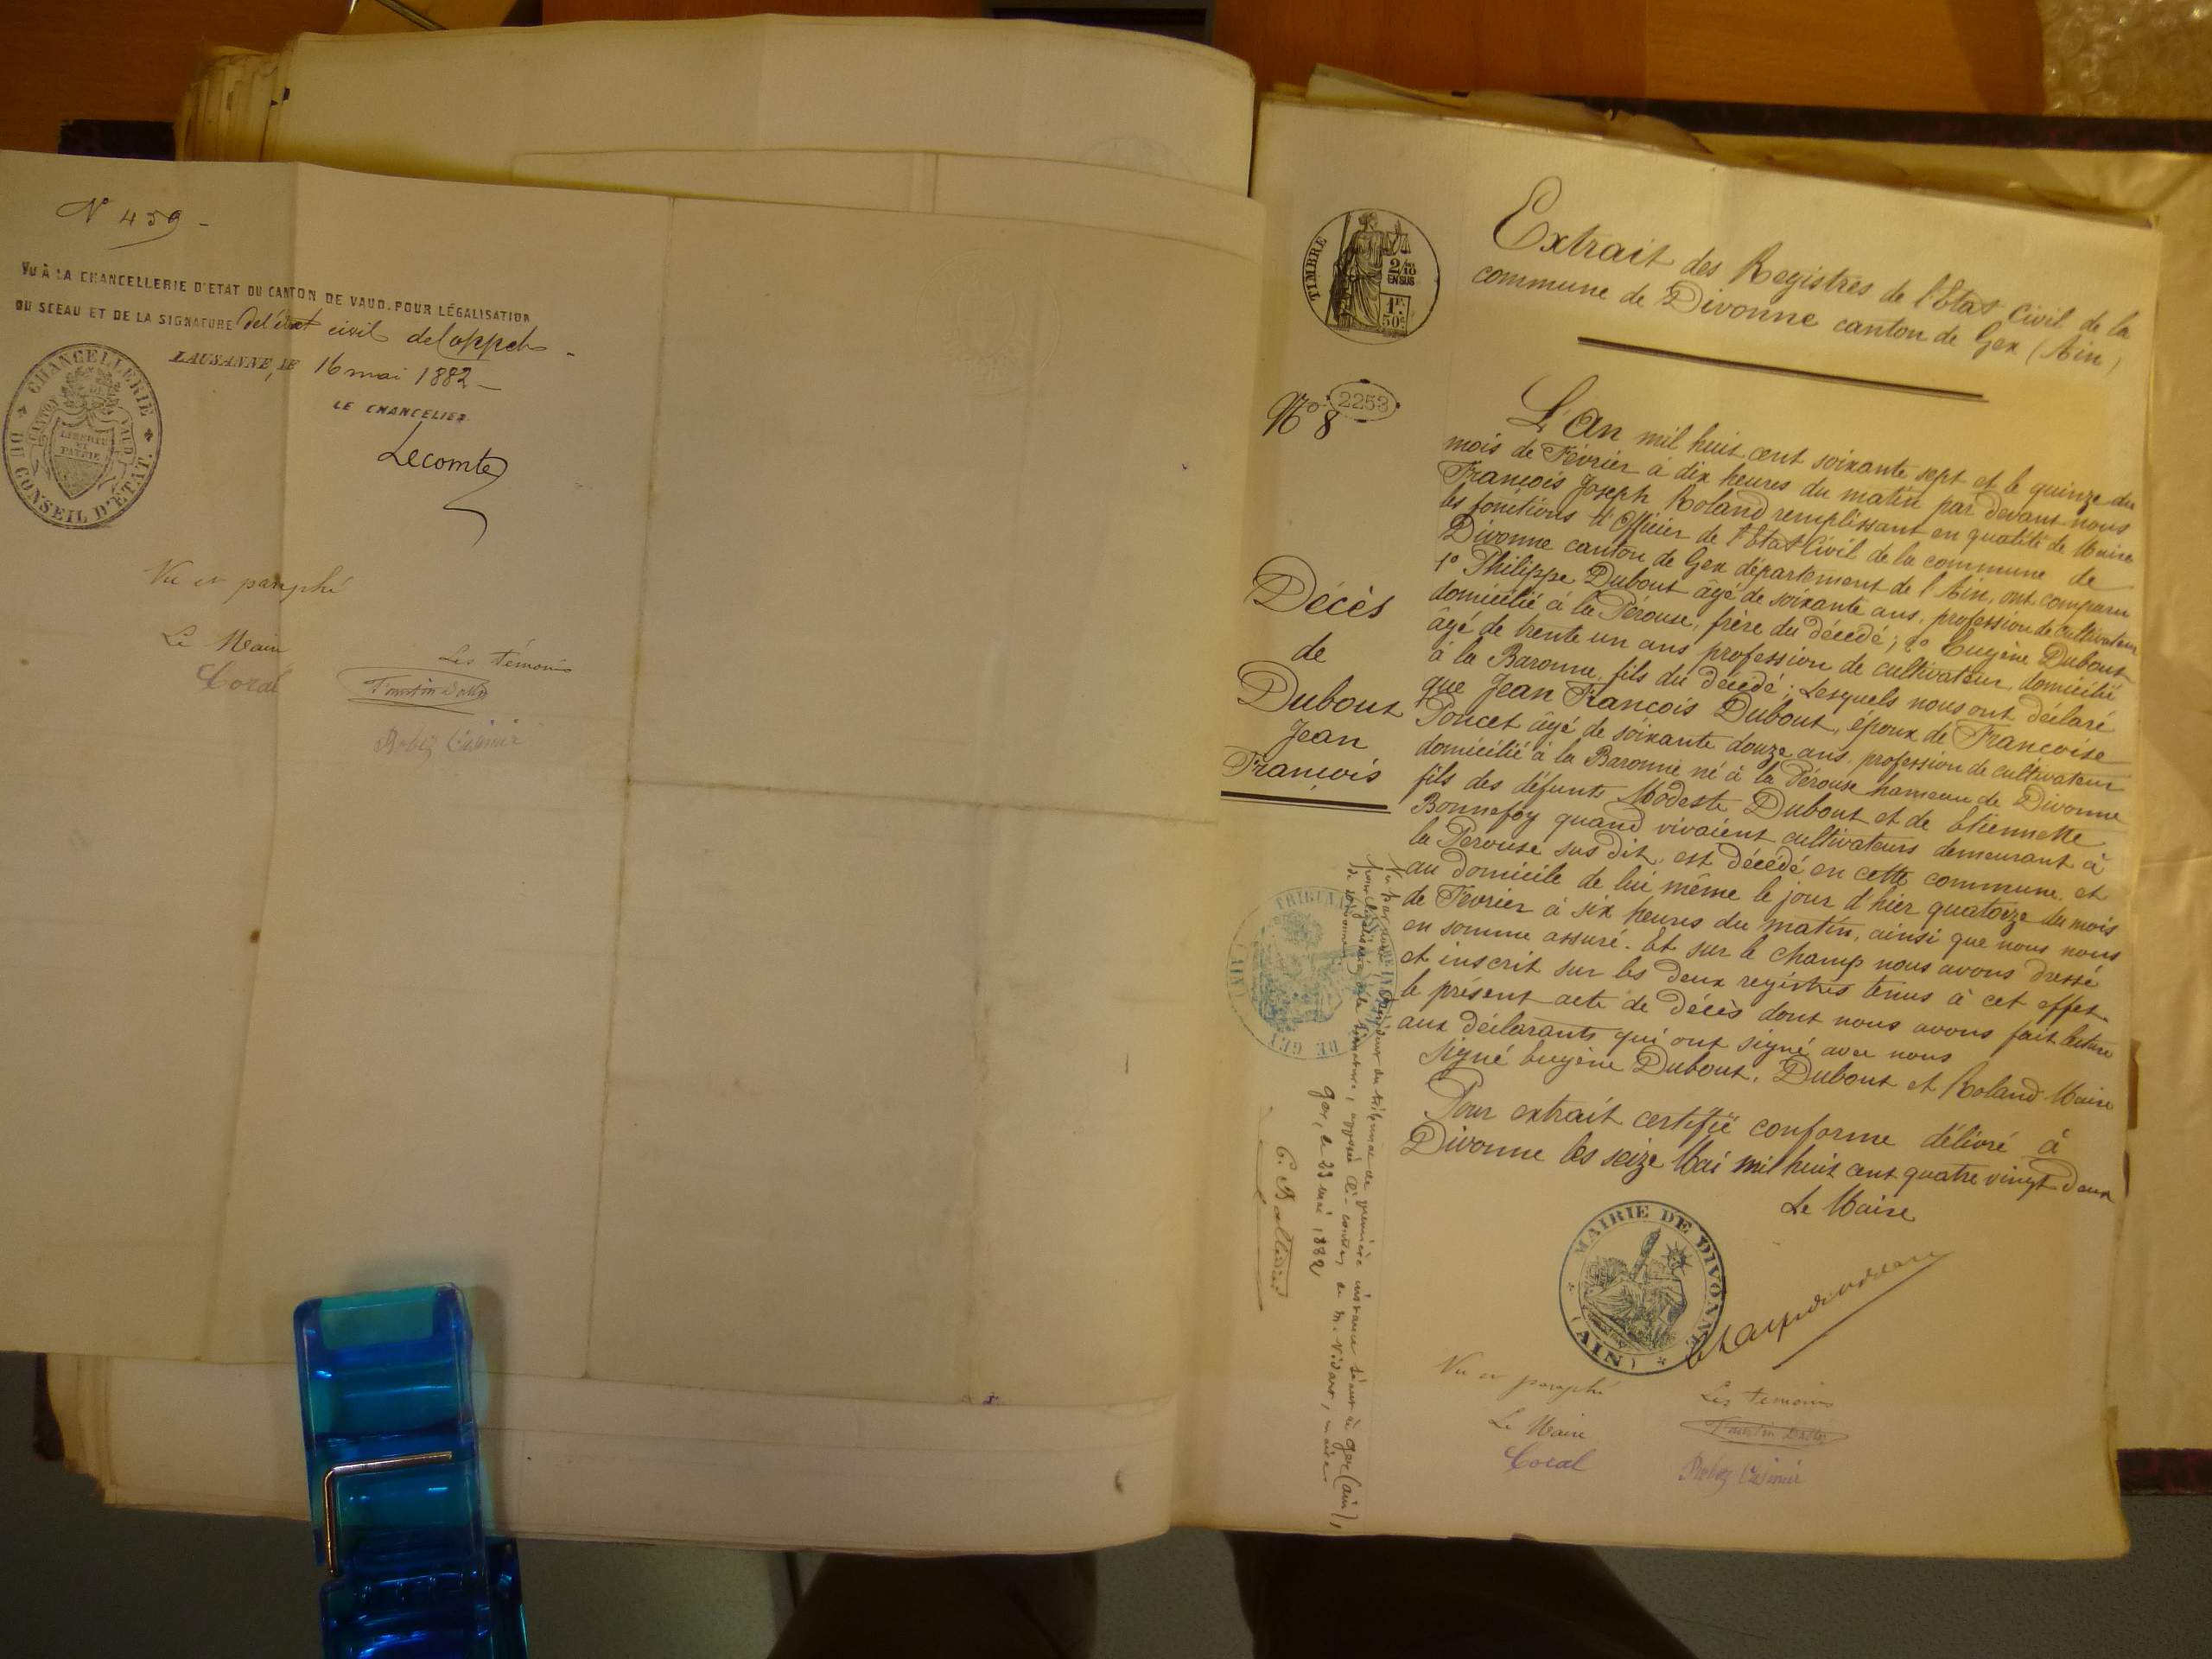 N° 459 -
VU À LA CHANCELLERIE D'ETAT DU CANTON DE VAUD, POUR LÉGALISATION
DU SCEAU ET DE LA SIGNATURE de l'état civil de Coppet.
LAUSANNE, LE 16 mai 1882 -
LE CHANCELIER.
Lecomte
CHANCELLERIE DU CONSEIL D'ÉTAT.
CANTON DE VAUD
LIBERTÉ
ET
PATRIE
Vu et paraphé
Le Maire
Coral
Les témoins
Robez Casimir
TIMBRE
2/10
EN SUS
1F.
50c.
Extrait des Registres de l'Etat Civil de la
commune de Divonne canton de Gex (Ain)
N° 8
2253
L'An mil huit cent soixante sept et le quinze du
mois de Février à dix heures du matin par devant nous
François Joseph Roland remplissant en qualité de Maire
les fonctions d'Officier de l'Etat Civil de la commune de
Divonne canton de Gex département de l'Ain, ont comparu
1° Philippe Dubout âgé de soixante ans, profession de cultivateur
domicilié à la Pérouse, frère du décédé; 2° Eugène Dubout
âgé de trente un ans profession de cultivateur, domicilié
à la Baronne, fils du décédé; Lesquels nous ont déclaré
que Jean François Dubout, époux de Françoise
Poncet âgé de soixante douze ans, profession de cultivateur
domicilié à la Baronne né à la Pérouse hameau de Divonne
fils des défunts Modeste Dubout et de Etiennette
Bonnefoy quand vivaient cultivateurs demeurant à
la Perouse sus dit, est décédé en cette commune, et
au domicile de lui même le jour d'hier quatorze du mois
de Février à six heures du matin, ainsi que nous nous
en somme assuré. Et sur le champ nous avons dressé
et inscrit sur les deux registres tenus à cet effet
le présent acte de décès dont nous avons fait lecture
aux déclarants qui ont signé avec nous
Signé Eugène Dubout, Dubout et Roland Maire
Pour extrait certifié conforme délivré à
Divonne les seize Mai mil huit cent quatre vingt deux
Le Maire
Décès
de
Dubout
Jean
François
Vu par nous Président du tribunal de première instance séant à Gex (Ain),
pour légalisation de la signature, apposée ci-contre, de M. Vidart, maire
de Divonne.
Gex, le 23 mai 1882
TRIBUNAL DE PREMIERE INSTANCE
DE GEX (AIN)
MAIRIE DE DIVONNE
(AIN)
Vu et paraphé
Le Maire
Coral
Les témoins
Robez Casimir